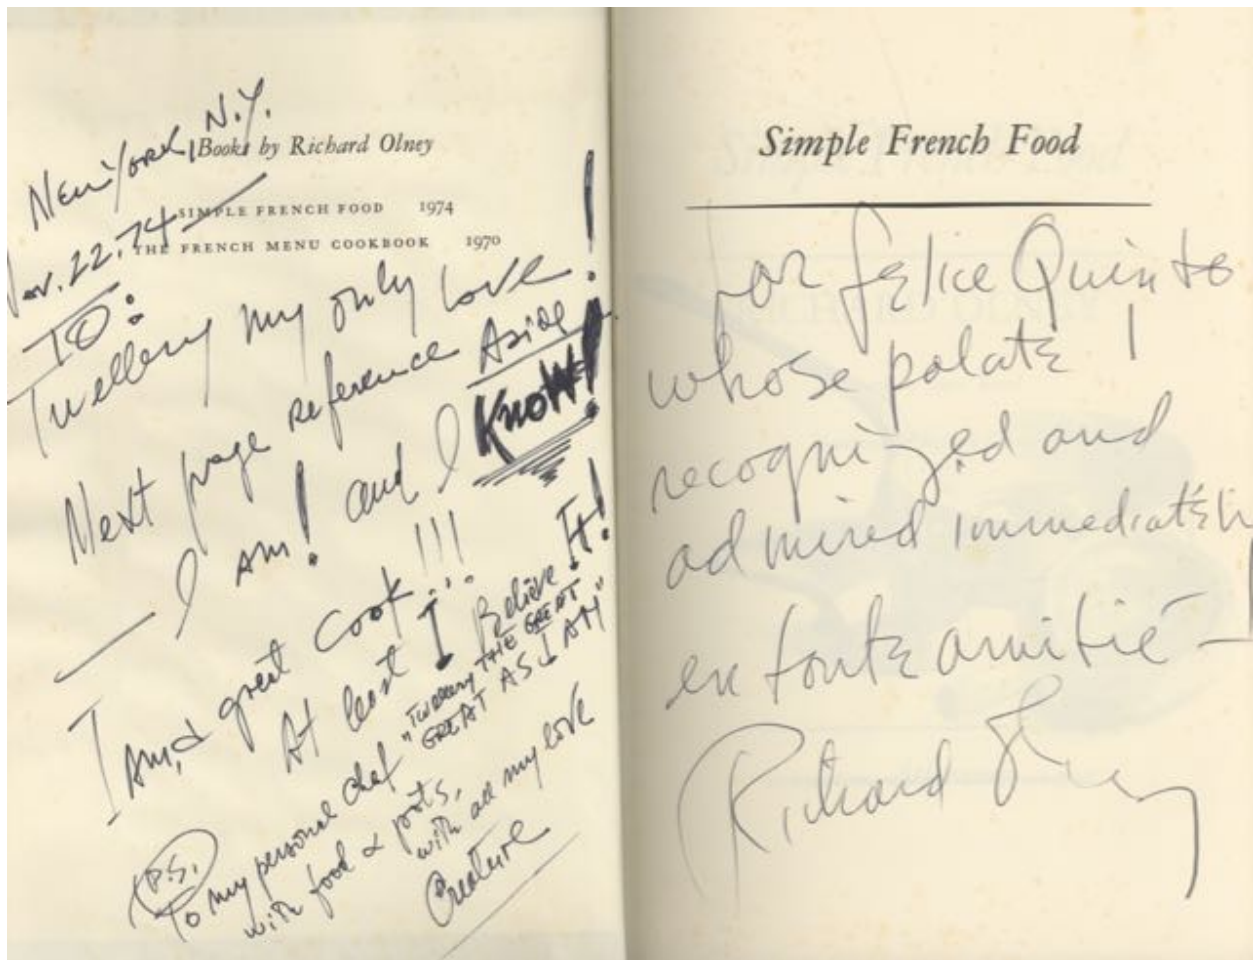 New York, N.Y.
Books by Richard Olney
Nov. 22. 74
SIMPLE FRENCH FOOD 1974
THE FRENCH MENU COOKBOOK 1970
TO:
Twellery my only love!
Next page reference Aside
— I am! and I KNOW!
I am, a great cook...!!!
At least I Believe It!
"Twellery THE GREAT
GREAT AS I AM"
(P.S.)
To my personal chef
with food & pots,
with all my love
Creature
Simple French Food
For Felice Quinto
whose palate I
recognized and
admired immediately
en toute amitié —
Richard Olney